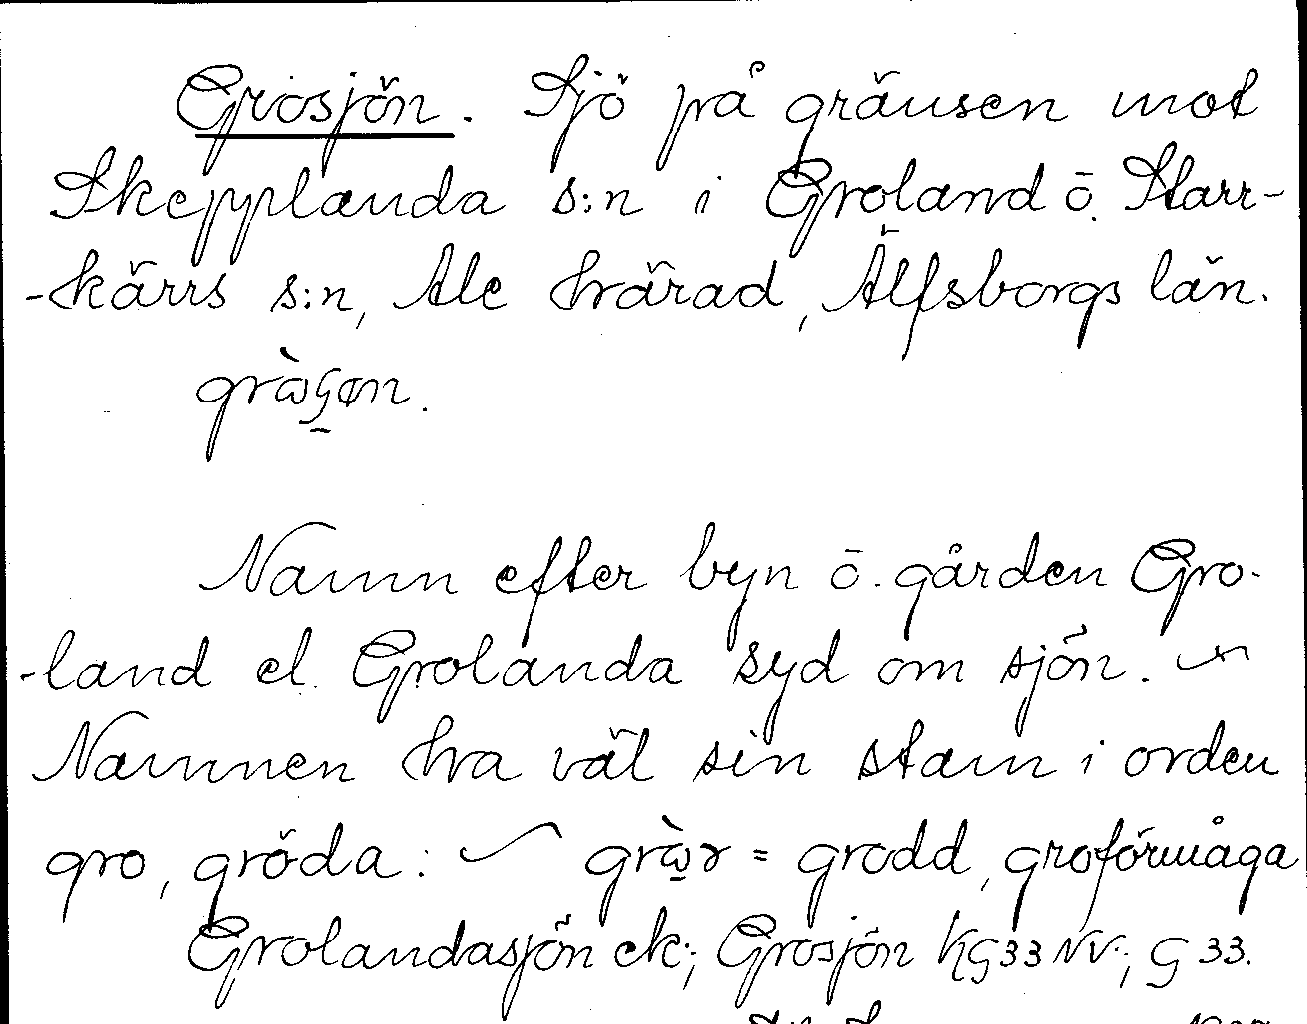 Grosjön. Sjö på gränsen mot
Skepplanda s:n i Groland ö. Starr-
-kärrs s:n, Ale härad, Älfsborgs län.

Namn efter byn ö. gården Gro-
-land el. Grolanda syd om sjön.
Namnen ha väl sin stam i orden
gro, gröda: = grodd, groförmåga
Grolandasjön ek; Grosjön KG33NV; G 33.